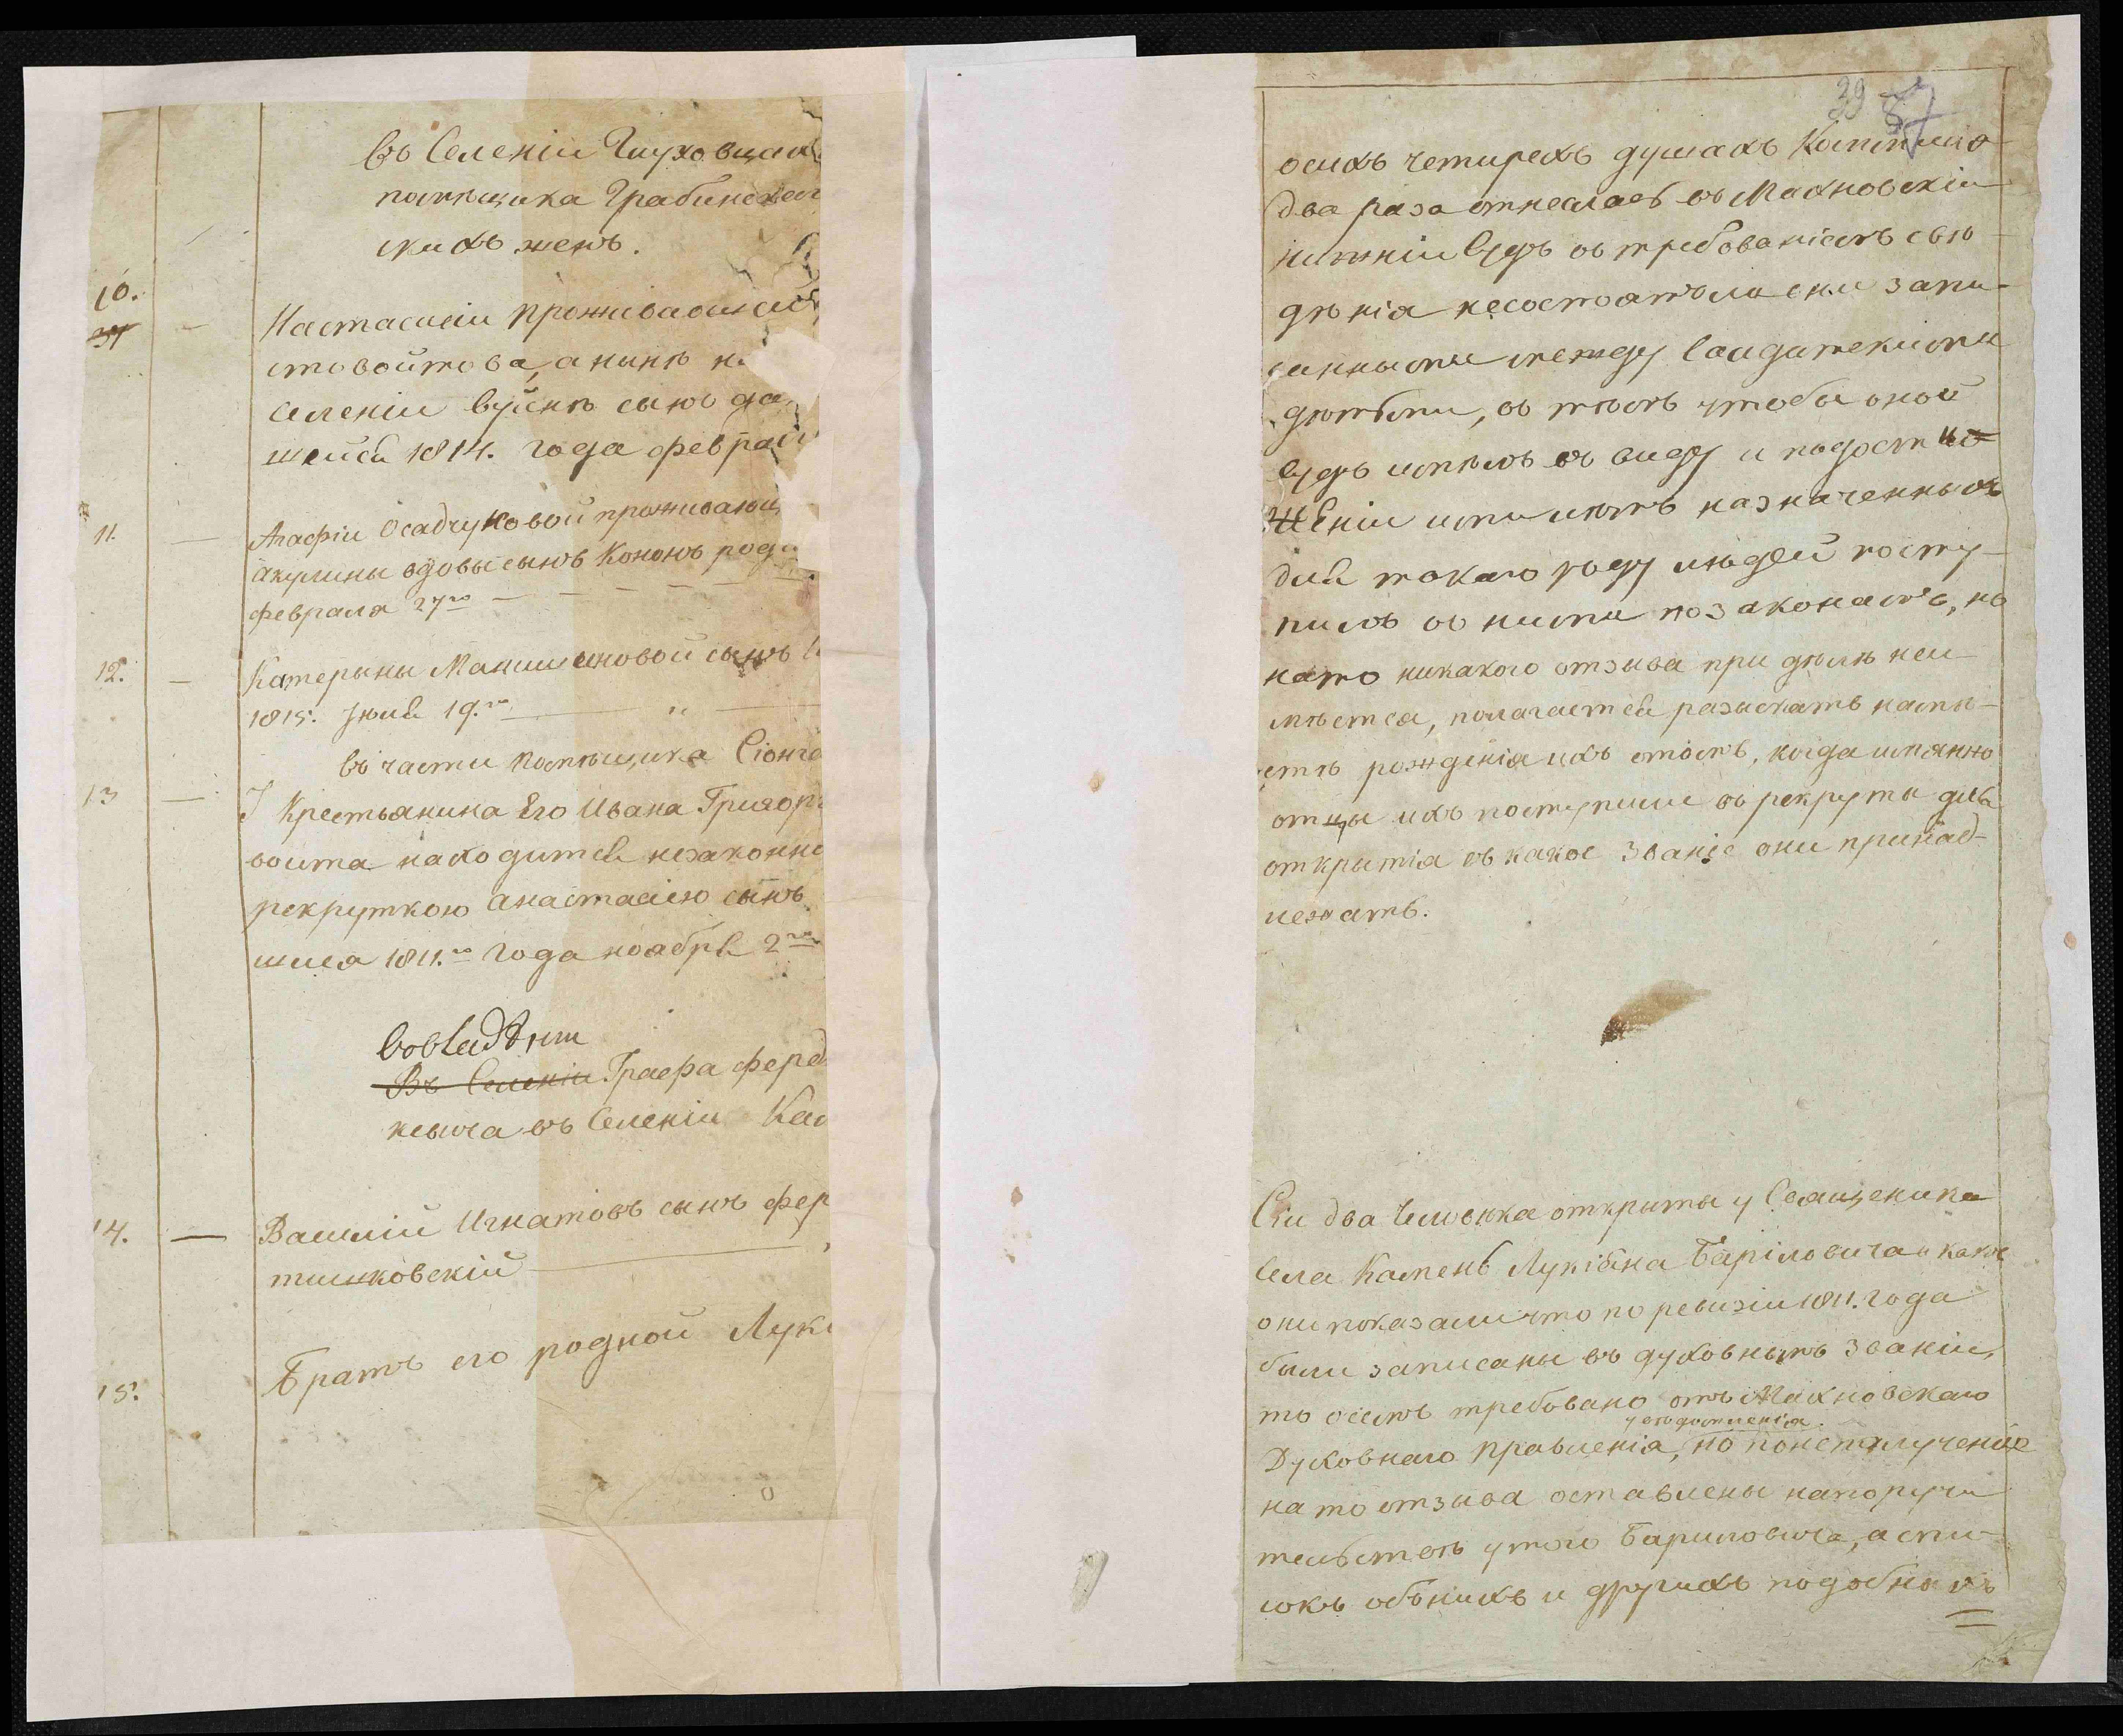 въ Селеніи Глуховцахъ
помѣщика Грабинскаг
скихъ женъ.
10.
Настасіи проживающей
стовойтова, а нынѣ н
селеніи сынъ
шейся 1814. года феврал
11. Агафіи Осадчуковой проживающ
Акулины вдовы сынъ Кононъ роди
февраля 27го
12. Катерыны сынъ
1815. Іюля 19.го
въ части помѣщика
13 У Крестьянина Его Ивана Григор
воита находится незаконно
рекруткою Анастасіею сынъ
шися 1811.го года ноября 2го
Во владѣніи
Въ Селеніи Графа феред
кевича въ Селеніи Кам
14. Василій Игнатовъ сынъ фер
тинковскій
15. Братъ его родной Луки
39 57
осихъ четирехъ душахъ Коммисіа
два раза отнеслась въ Махновскій
нижній Судъ съ требованіемъ свѣ-
дѣнія несостоятъли они запи-
санными между Солдатскими
дѣтьми, съ тѣмъ чтобы оной
Судъ имѣлъ въ виду и
шеніи или мѣтъ назначенныхъ
для такаго роду людей посту-
пилъ съ ними по законамъ, но
нато никакого отзыва при дѣлѣ неи-
мѣется, полагается разыскать намѣ-
стѣ рожденія ихъ отомъ, когда имянно
отцы ихъ поступили въ рекруты для
открытія въ какое званіе они принад-
лежатъ.
Сіи два Человѣка открыты у Священика
Села Камень Лукіана Бариловича и какъ
они показали что по ревизіи 1811. года
были записаны въ духовнымъ званіи,
то осемъ требовано отъ Махновскаго
увѣдомленія.
Духовнаго правленія, но понеполученіе
на то отзыва оставлены напоручи-
тельствѣ у того Бариловича, а спи-
сокъ обънихъ и другихъ подобныхъ